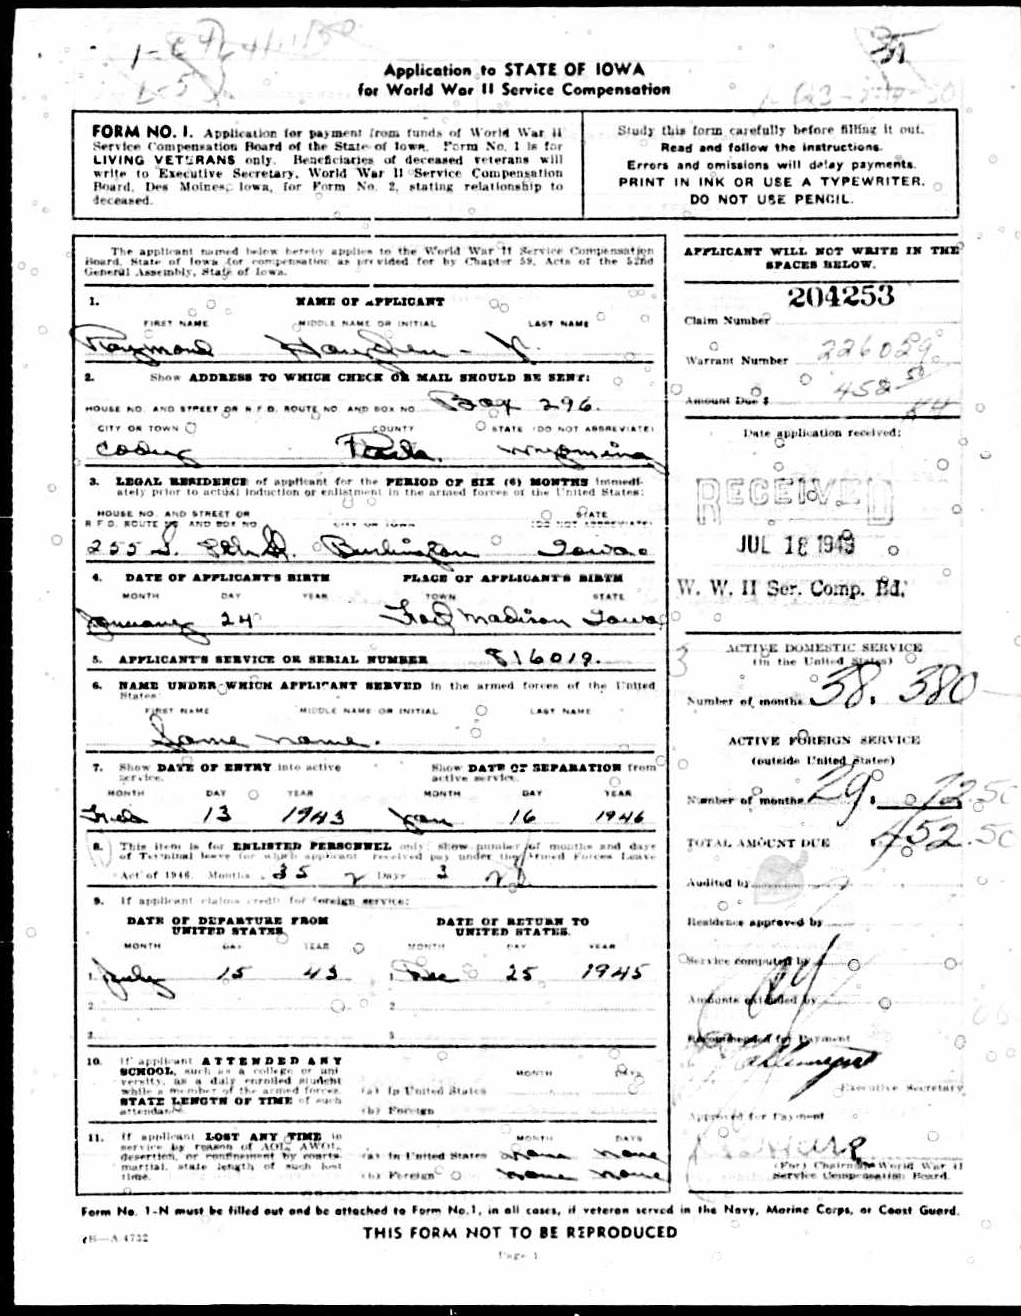 Application to STATE OF IOWA
for World War II Service Compensation
FORM NO. 1. Application for payment from funds of World War II
Service Compensation Board of the State of Iowa. Form No. 1 is for
LIVING VETERANS only. Beneficiaries of deceased veterans will
write to Executive Secretary, World War II Service Compensation
Board, Des Moines, Iowa, for Form No. 2, stating relationship to
deceased.
Study this form carefully before filling it out.
Read and follow the instructions.
Errors and omissions will delay payments.
PRINT IN INK OR USE A TYPEWRITER.
DO NOT USE PENCIL.
The applicant named below hereby applies to the World War II Service Compensation
Board, State of Iowa for compensation as provided for by Chapter 59, Acts of the 52nd
General Assembly, State of Iowa.
1. NAME OF APPLICANT
FIRST NAME MIDDLE NAME OR INITIAL LAST NAME
Raymond Hayden
2. Show ADDRESS TO WHICH CHECK OR MAIL SHOULD BE SENT:
HOUSE NO. AND STREET OR R.F.D. ROUTE NO. AND BOX NO. Box 296.
CITY OR TOWN COUNTY STATE (DO NOT ABBREVIATE)
Cody Park. Wyoming
3. LEGAL RESIDENCE of applicant for the PERIOD OF SIX (6) MONTHS immedi-
ately prior to actual induction or enlistment in the armed forces of the United States:
HOUSE NO. AND STREET OR STATE
R.F.D. ROUTE NO. AND BOX NO. CITY OR TOWN (DO NOT ABBREVIATE)
255 S. 8th St. Burlington Iowa
4. DATE OF APPLICANT'S BIRTH PLACE OF APPLICANT'S BIRTH
MONTH DAY YEAR TOWN STATE
January 24 Fort Madison Iowa
5. APPLICANT'S SERVICE OR SERIAL NUMBER 816019.
6. NAME UNDER WHICH APPLICANT SERVED in the armed forces of the United
States:
FIRST NAME MIDDLE NAME OR INITIAL LAST NAME
Same name.
7. Show DATE OF ENTRY into active Show DATE OF SEPARATION from
service. active service.
MONTH DAY YEAR MONTH DAY YEAR
Feb 13 1943 Jan 16 1946
8. This item is for ENLISTED PERSONNEL only: Show number of months and days
of Terminal leave for which applicant received pay under the Armed Forces Leave
Act of 1946. Months 35 Days 3
9. If applicant claims credit for foreign service:
DATE OF DEPARTURE FROM DATE OF RETURN TO
UNITED STATES UNITED STATES.
MONTH DAY YEAR MONTH DAY YEAR
1. July 15 43 1. Dec 25 1945
2. 2.
3. 3.
10. If applicant ATTENDED ANY
SCHOOL, such as a college or uni-
versity, as a duly enrolled student
while a member of the armed forces,
STATE LENGTH OF TIME of such
attendance.
MONTH DAYS
(a) In United States
(b) Foreign
11. If applicant LOST ANY TIME in
service by reason of AOL, AWOL,
desertion, or confinement by courts-
martial, state length of such lost
time.
MONTH DAYS
(a) In United States none none
(b) Foreign none none
APPLICANT WILL NOT WRITE IN THE
SPACES BELOW.
204253
Claim Number
Warrant Number 226029
Amount Due $ 452 50
Date application received:
RECEIVED
JUL 18 1949
W. W. II Ser. Comp. Bd.
ACTIVE DOMESTIC SERVICE
(in the United States)
Number of months 38. $ 380
ACTIVE FOREIGN SERVICE
(outside United States)
Number of months 29 $ 72.50
TOTAL AMOUNT DUE $ 452.50
Audited by
Residence approved by
Service computed by
Amounts extended by
Recommended for Payment
Executive Secretary
Approved for Payment
(For) Chairman World War II
Service Compensation Board.
Form No. 1-N must be filled out and be attached to Form No. 1, in all cases, if veteran served in the Navy, Marine Corps, or Coast Guard.
THIS FORM NOT TO BE REPRODUCED
Page 1